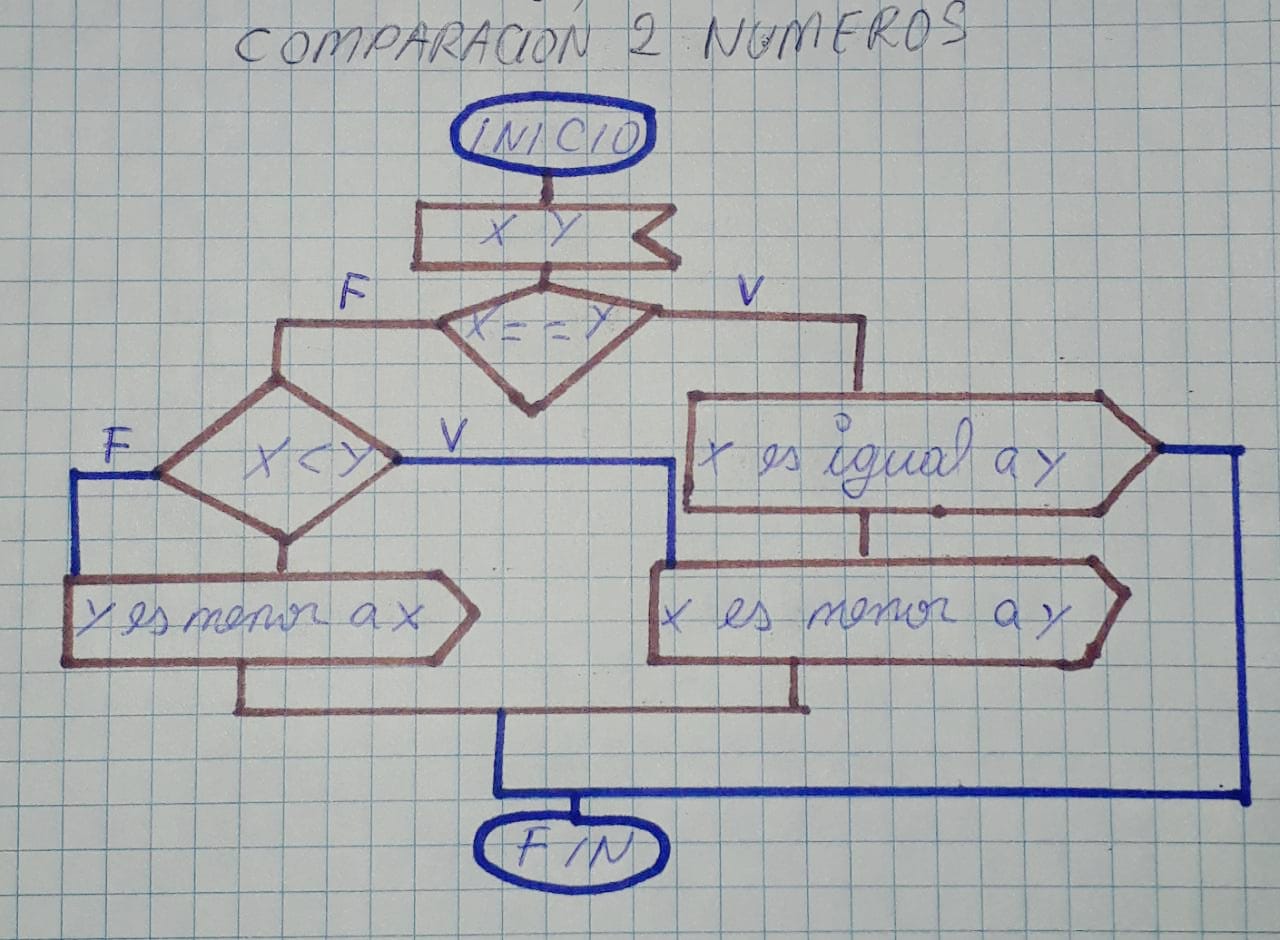 COMPARACION 2 NUMEROS
INICIO
X Y
F
V
X==Y
F
X<Y
V
X es igual a y
y es menor a x
x es menor a y
FIN